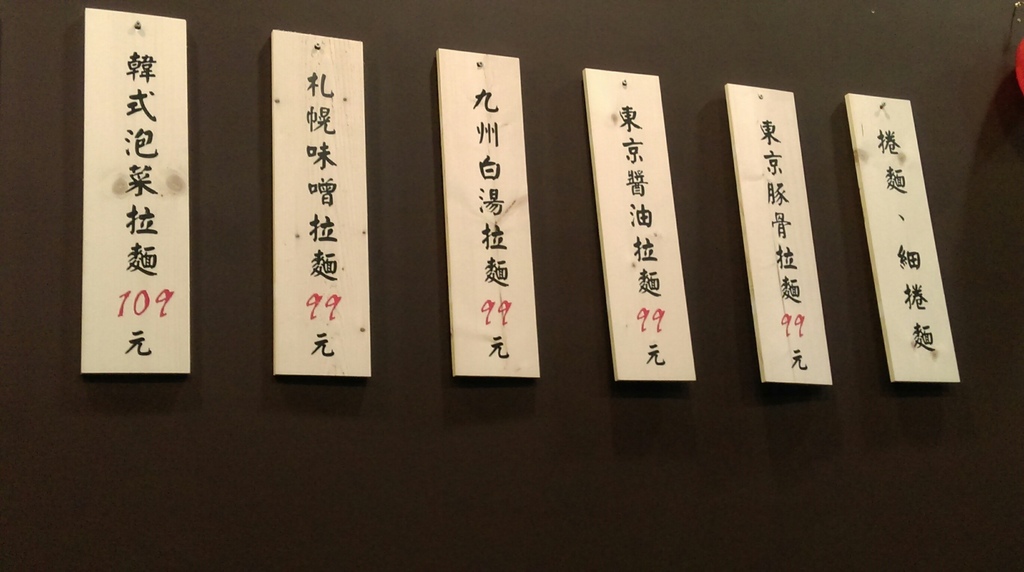 韓式泡菜拉麵109元
札幌味噌拉麵99元
九州白湯拉麵99元
東京醬油拉麵99元
東京豚骨拉麵99元
捲麵、細捲麵